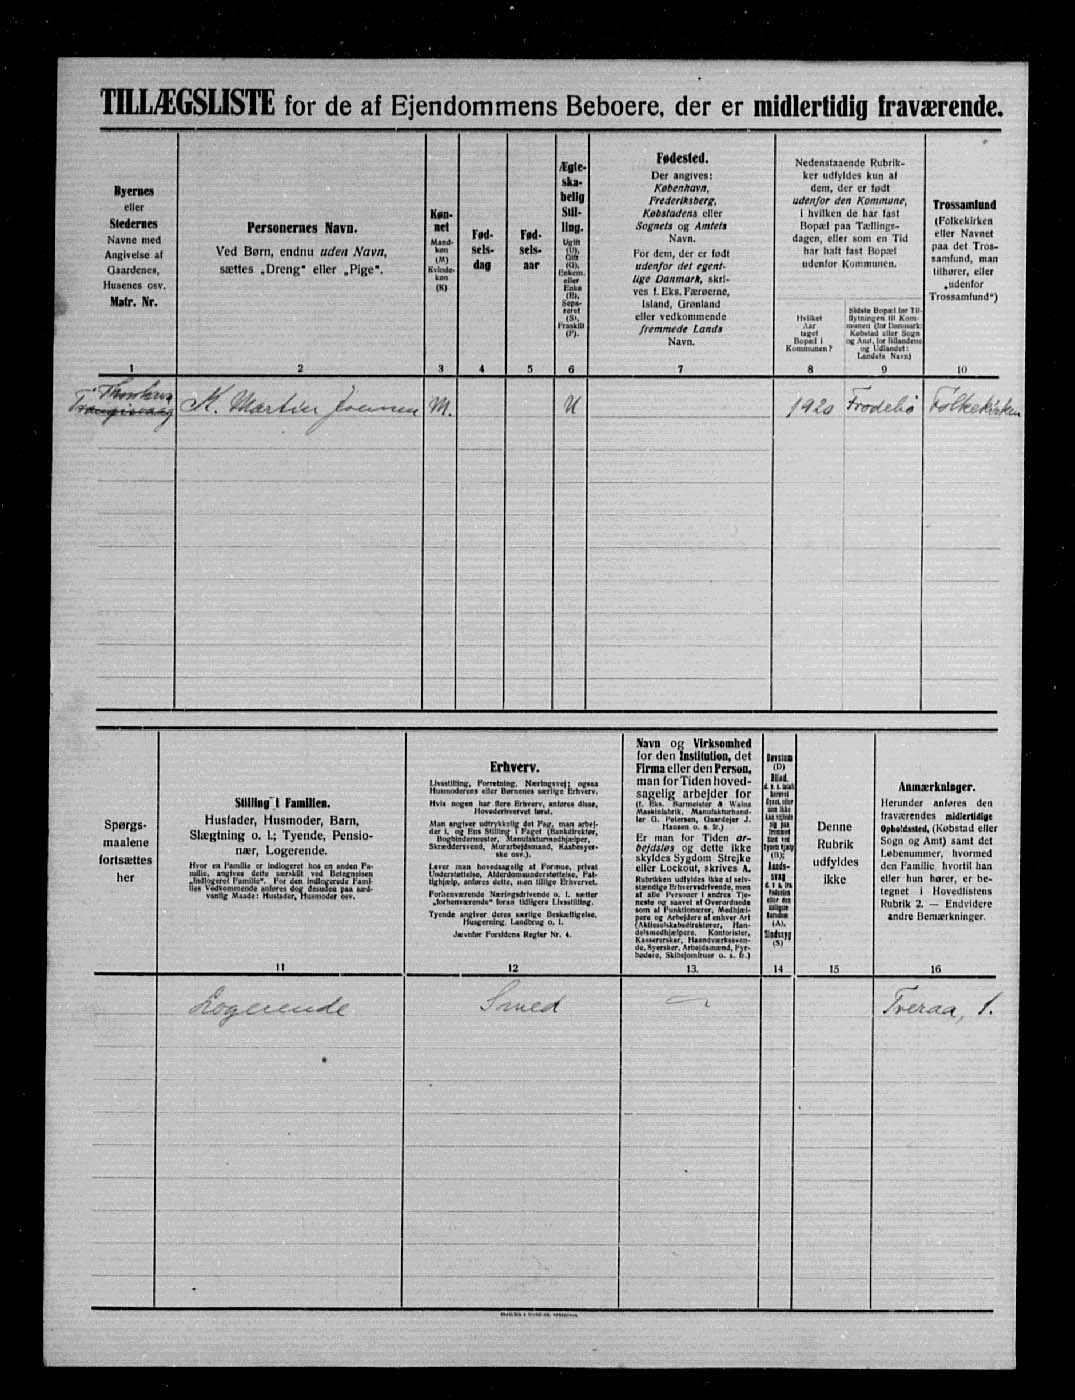 TILLÆGSLISTE for de af Ejendommens Beboere, der er midlertidig fraværende.
Byernes
eller
Stedernes
Navne med
Angivelse af
Gaardenes,
Husenes osv.
Matr. Nr.
1
Personernes Navn.
Ved Børn, endnu uden Navn,
sættes „Dreng“ eller „Pige“.
2
Køn-
net
Mand-
køn
(M)
Kvinde-
køn
(K)
3
Fød-
sels-
dag
4
Fød-
sels-
aar
5
Ægte-
ska-
belig
Stil-
ling.
Ugift
(U),
Gift
(G),
Enkem.
eller
Enke
(E),
Sepa-
reret
(S),
Fraskilt
(F).
6
Fødested.
Der angives:
København,
Frederiksberg,
Købstadens eller
Sognets og Amtets
Navn.
For dem, der er født
udenfor det egent-
lige Danmark, skri-
ves f. Eks. Færøerne,
Island, Grønland
eller vedkommende
fremmede Lands
Navn.
7
Nedenstaaende Rubrik-
ker udfyldes kun af
dem, der er født
udenfor den Kommune,
i hvilken de har fast
Bopæl paa Tællings-
dagen, eller som en Tid
har haft fast Bopæl
udenfor Kommunen.
Hvilket
Aar
taget
Bopæl i
Kommunen?
8
Sidste Bopæl før Til-
flytningen til Kom-
munen (for Danmark:
Købstad eller Sogn
og Amt, for Bilandene
og Udlandet:
Landets Navn)
9
Trossamfund
(Folkekirken
eller Navnet
paa det Tros-
samfund, man
tilhører, eller
„udenfor
Trossamfund“)
10
Trangisvaag K. Martin Joensen M. U 1920 Frodebö Folkekirken
Spørgs-
maalene
fortsættes
her
Stilling i Familien.
Husfader, Husmoder, Barn,
Slægtning o. l.; Tyende, Pensio-
nær, Logerende.
Hvor en Familie er indlogeret hos en anden Fa-
milie, angives dette særskilt ved Betegnelsen
„Indlogeret Familie“. For den indlogerede Fami-
lies Vedkommende anføres dog desuden paa sæd-
vanlig Maade: Husfader, Husmoder osv.
11
Erhverv.
Livsstilling, Forretning, Næringsvej; ogsaa
Husmoderes eller Børnenes særlige Erhverv.
Hvis nogen har flere Erhverv, anføres disse,
Hovederhvervet først.
Man angiver udtrykkelig det Fag, man arbej-
der i, og Ens Stilling i Faget (Bankdirektør,
Bogbindermester, Manufakturmedhjælper,
Skræddersvend, Murarbejdsmand, Kaabesyer-
ske osv.).
Lever man hovedsagelig af Formue, privat
Understøttelse, Alderdomsunderstøttelse, Fat-
tighjælp, anføres dette, men tillige Erhvervet.
Forhenværende Næringsdrivende o. l. sætter
„forhenværende“ foran tidligere Livsstilling.
Tyende angiver deres særlige Beskæftigelse,
Husgerning, Landbrug o. l.
Jævnfør Forsidens Regler Nr. 4.
12
Navn og Virksomhed
for den Institution, det
Firma eller den Person,
man for Tiden hoved-
sagelig arbejder for
(f. Eks. Burmeister & Wains
Maskinfabrik, Manufakturhand-
ler G. Petersen, Gaardejer J.
Hansen o. s. fr.)
Er man for Tiden ar-
bejdsløs og dette ikke
skyldes Sygdom Strejke
eller Lockout, skrives A.
Rubrikken udfyldes ikke af selv-
stændige Erhvervsdrivende, men
af alle Personer i andres Tje-
neste og saavel af Overordnede
som af Funktionærer, Medhjæl-
pere og Arbejdere af enhver Art
(Aktieselskabsdirektører, Han-
delsmedhjælpere, Kontorister,
Kassererske, Haandværkssven-
de, Syersker, Arbejdsmænd, Fyr-
bødere, Skibsjomfruer o. s. fr.)
13.
Døvstum
(D)
Blind,
(B);
(A),
Sindssyg
(S)
14
Denne
Rubrik
udfyldes
ikke
15
Anmærkninger.
Herunder anføres den
fraværendes midlertidige
Opholdssted, (Købstad eller
Sogn og Amt) samt det
Løbenummer, hvormed
den Familie, hvortil han
eller hun hører, er be-
tegnet i Hovedlistens
Rubrik 2. — Endvidere
andre Bemærkninger.
16
Logerende Smed Tveraa, 1.